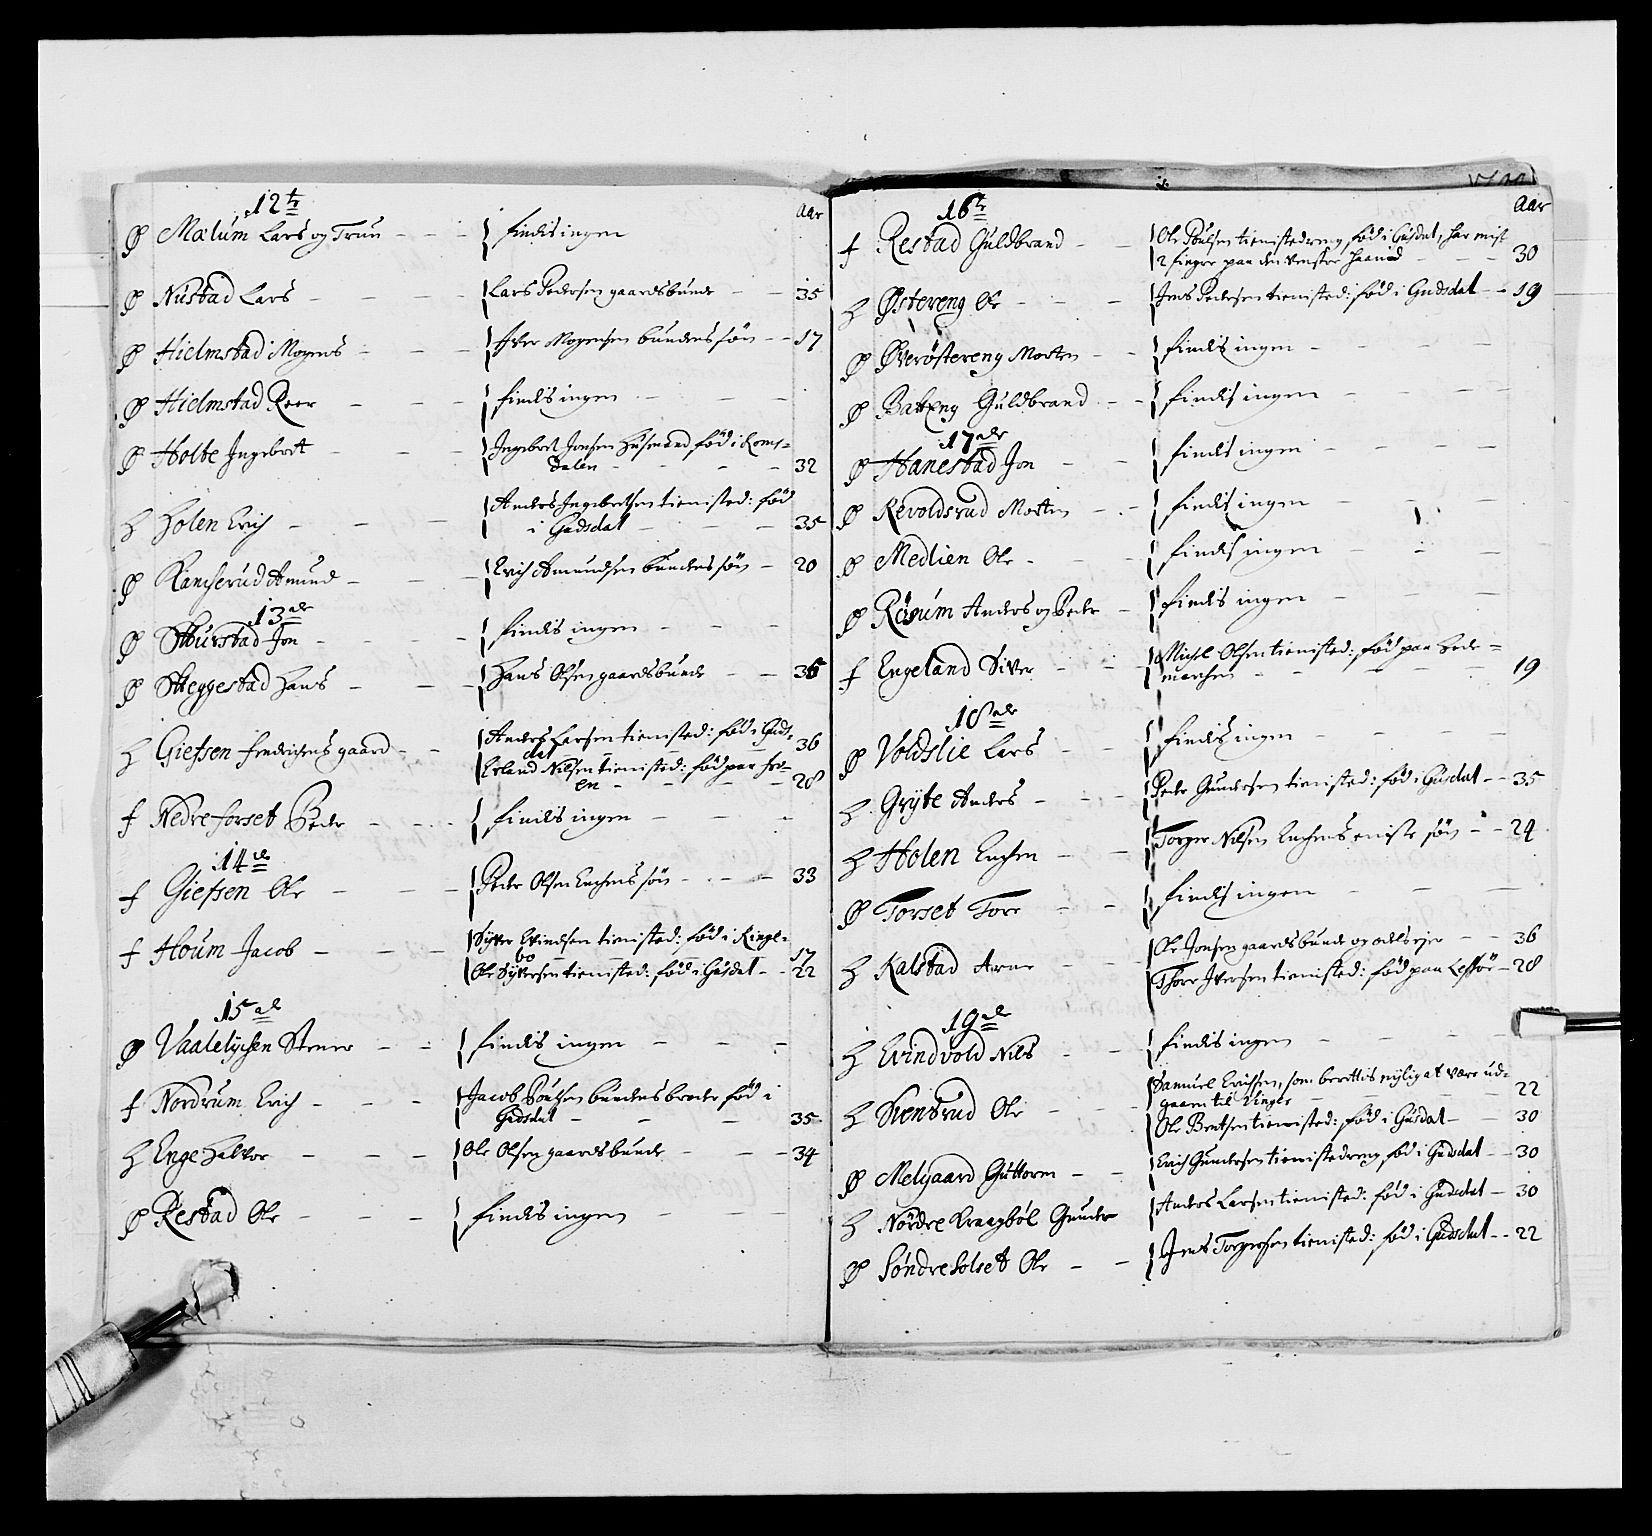 12te
Aar
Ø Mælum Lars og Trun - - - { findis ingen
Ø Nustad Lars - - - { Lars Pedersen gaardsbunde - - 35
Ø Hielmstad Mogens - - - { Iver Mogensen bundens søn - - 17
Ø Hielmstad Roer - - - { findis ingen - -
Ø Holte Ingebret - - - { Ingebret Jonsen husmand, fød i Roms=
dalen - - - - 32
H Holen Erich - - - { Anders Ingebretsen tienisted: fød
i Gudsdal - - - 35
Ø Kamserud Amund - - - { Erich Amundsen bundens søn - 20
13de
Ø Skurstad Jon - - - { findis ingen - - -
Ø Skeggestad Hans - - - { Hans Olsen gaardsbunde - - 36
H Giefsen fredrichens gaard - - { Anders Larsen tienisted: fød i Guds= 36
dal
Erland Nilsen tienisted: fød paa Fro=
en - - - - 28
f Nedreforset Peder - - - { findis ingen - - -
14de
f Giefsen Ole - - - { Peder Olsen Enchens søn - - - 33
f Houm Jacob - - - { Syver Evindsen tienisted: fød i Ringe=
bo 17
Ole Syversen tienisted: fød i Gusdal - - 22
15de
Ø Vaalelychen Stener - - { findis ingen - - -
f Nordrum Erich - - - { Jacob Poulsen bundens broder fød i
Gudsdal - - - 35
H Enge Halvor - - - { Ole Olsen gaardsbunde - - - 34
Ø Restad Ole - - - { findis ingen - - -
16te
Aar
f Restad Guldbrand - - { Ole Poulsen tienistedreng, fød i Gusdal, har mist
2 finger paa den venster haand - - - 30
H Østereng Ole - - - { Jens Pedersen tienisted: fød i Gudsdal - - 19
Ø Øverøstereng Morten - - { findis ingen - - -
Ø Batteng Guldbrand - - { findis ingen - - -
17de
Ø Hanestad Jon - - { findis ingen - - -
Ø Revoldsrud Morten - - { findis ingen - - -
Ø Medlien Ole - - - { findis ingen - - -
Ø Rosum Anders og Peder - { findis ingen - - -
f Engeland Siver - - { Michel Olsen tienisted: fød paa Hede=
marchen - - - - 19
18de
Ø Voldslie Lars - - { findis ingen - - -
H Gryte Anders - - - { Peder Gundersen tienisted: fød i Gusdal - - 35
H Holen Enchen - - { Torger Nilsen Enchens eniste søn - - 24
Ø Torset Tore - - { findis ingen - - -
H Kalstad Arne - - { Ole Jonsen gaardsbunde og odelsejer - - 36
Thore Iversen tienisted: fød paa Lessøe - 28
19de
H Evindvold Nils - - { findis ingen - - -
H Svendrud Ole - - - { Samuel Erichsen, som berettis nyligat være ud=
gaaen til Ringe - - - 22
Ole Bentsen tienisted: fød i Gusdal - - 30
Ø Melgaard Guttorm - - { Erich Gundersen tienistedreng, fød i Gudsdal - - 30
H Nordre Kraagbøl Gunder { Anders Larsen tienisted: fød i Gudsdal - 30
Ø Søndre Solset Ole - - { Jens Torgersen tienisted: fød i Gudsdal - - 22